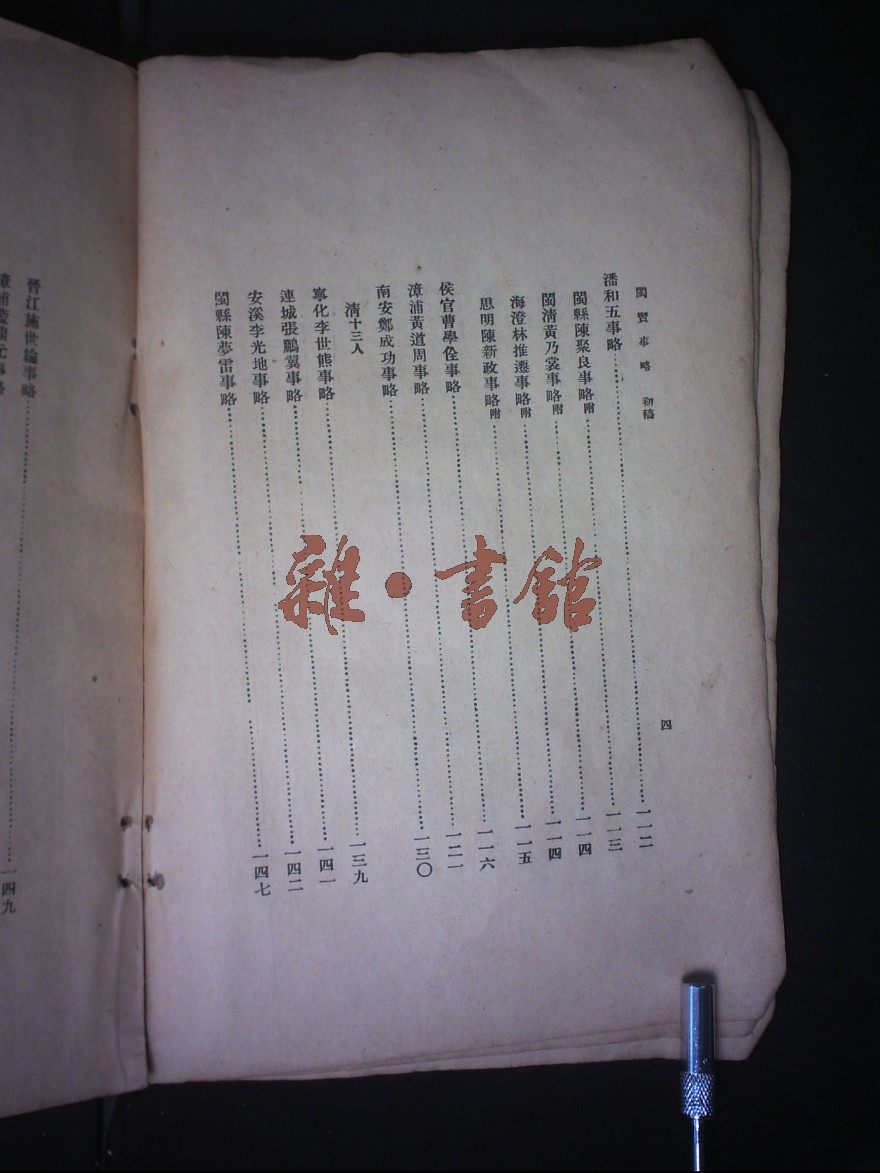 閩賢事略 初稿
四
潘和五事略……一一二
閩縣陳聚良事略附……一一三
閩清黃乃裳事略附……一一四
海澄林推遷事略附……一一四
思明陳新政事略附……一一五
侯官曹學佺事略……一一六
漳浦黃道周事略……一二一
南安鄭成功事略……一三〇
清十三人
寧化李世熊事略……一三九
連城張鵬翼事略……一四一
安溪李光地事略……一四二
閩縣陳夢雷事略……一四七
晉江施世綸事略……一四九
雜·書館